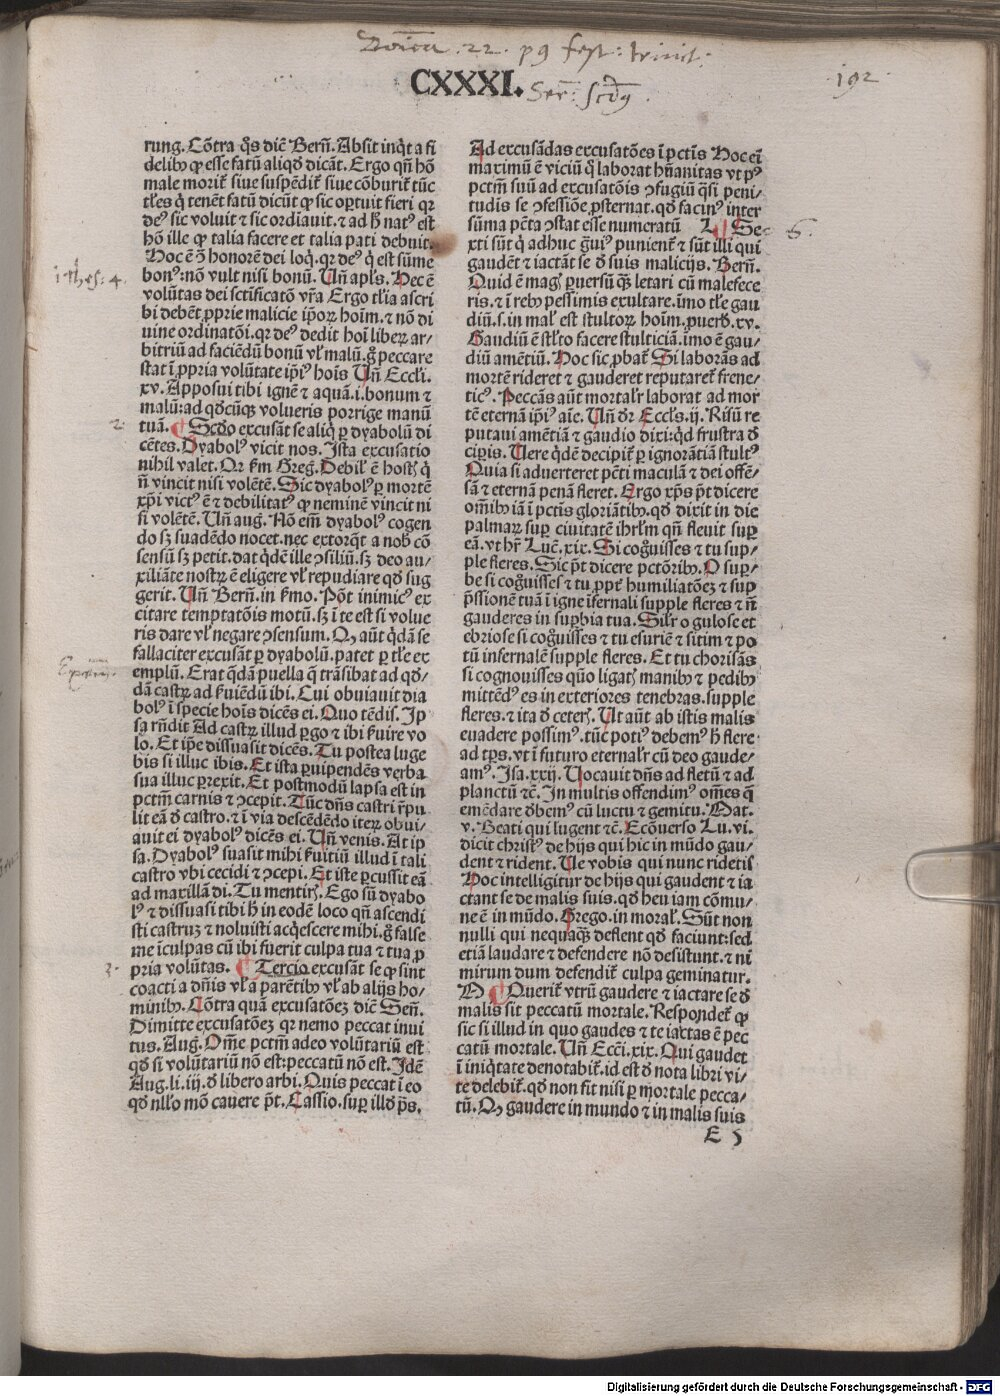 Dōica .22. p9 fest: trinit:
CXXXI.
Ser: scd9.
192
rung. Cōtra q̄s dic̄ Bern̄. Absit inq̇t a fi
delibꝫ ꝙ esse fatū aliqd̕ dicāt. Ergo qn̄ hō
male morit᷑ siue suspēdit᷑ siue cōburit᷑ tūc
tl̕es q̇ tenēt fatū dicūt ꝙ sic oꝑtuit fieri qꝛ
deꝰ sic voluit ⁊ sic ordīauit. ⁊ ad h̄ natꝰ est
hō ille ꝙ talia facere et talia pati debuit.
Hoc ē ꝯ̄ honorē dei loq̇. qꝛ deꝰ q̇ est sūme
bonꝰ: nō vult nisi bonū. Un̄ apl̕s. Hec ē
volūtas dei sctificatō vr̄a Ergo tl̕ia ascri
bi debēt ꝓprie malicie ip̄oꝝ hoīm. ⁊ nō di
uine ordinatōi. qꝛ deꝰ dedit hoī liberꝝ ar⸗
bitriū ad faciēdū bonū vl̕ malū. g̊ peccare
stat ī ꝓpria volūtate ip̄iꝰ hoīs Un̄ Eccl̕i.
xv. Apposui tibi ignē ⁊ aquā .i. bonum ⁊
malū: ad qd̕cūqꝫ volueris porrige manū
tuā. ¶ Scd̕o excusāt se aliq̇ ꝑ dyabolū di
cētes. Dyabolꝰ vicit nos. Ista excusatio
nihil valet. Qꝛ ẜm Greg̕. Debil̕ ē hostꝭ q̇
n̄ vincit nisi volētē. Sic dyabolꝰ ꝑ mortē
xp̄i victꝰ ē ⁊ debilitatꝰ ꝙ neminē vincit ni
si volētē. Un̄ aug̕. Nō em̄ dyabolꝰ cogen
do sꝫ suadēdo nocet. nec extorq̄t a nob̕ cō
sensū sꝫ petit. dat q̇dē ille ꝯsiliū. sꝫ deo au⸗
xiliāte nostrꝝ ē eligere vl̕ repudiare qd̕ sug
gerit. Un̄ Bern̄. in ẜmo. Pōt inimicꝰ ex
citare temptatōis motū. sꝫ ī te est si volue
ris dare vl̕ negare ꝯsensum. Qꝫ aūt q̇dā se
fallaciter excusāt ꝑ dyabolū. patet ꝑ tl̕e ex
emplū. Erat q̇dā puella q̄ trāsibat ad qd̕⸗
dā castrꝝ ad ẜuiēdū ibi. Cui obuiauit dia
bolꝰ ī specie hoīs dicēs ei. Quo tēdis. Ip
sa rn̄dit Ad castrꝝ illud ꝑgo ⁊ ibi ẜuire vo
lo. Et ip̄e dissuasit dicēs. Tu postea luge
bis si illuc ibis. Et ista ꝑuipendēs verba
sua illuc ꝑrexit. Et postmodū lapsa est in
pctm̄ carnis ⁊ ꝯcepit. Tūc dn̄s castri r̄pu
lit eā d̕ castro. ⁊ ī via descēdēdo iteꝝ obui⸗
auit ei dyabolꝰ dicēs ei. Un̄ venis. At ip
sa. Dyabolꝰ suasit mihi ẜuitiū illud ī tali
castro vbi cecidi ⁊ ꝯcepi. Et iste ꝑcussit eā
ad maxillā dī. Tu mentirꝭ. Ego sū dyabo
lꝰ ⁊ dissuasi tibi h̄ in eodē loco qn̄ ascendi
sti castruꝫ ⁊ noluisti acq̇escere mihi. g̊ false
me īculpas cū ibi fuerit culpa tua ⁊ tua ꝓ
pria volūtas. ¶ Tercio excusāt se ꝙ sint
coacti a dn̄is vl̕ a parētibꝫ vl̕ ab alijs ho⸗
minibꝫ. Cōtra quā excusatōeꝫ dic̄ Sen̄.
Dimitte excusatōeꝫ qꝛ nemo peccat inui
tus. Aug̕. Om̄e pctm̄ adeo volūtariū est
qd̕ si volūtariū nō est: peccatū nō est. Idē
Aug. li. iij. d̕ libero arbi. Quis peccat ī eo
qd̕ nl̕lo mō cauere pt̄. Cassio. suꝑ ill̕d ps̄.
Ad excusādas excusatōes ī pctīs Hoc em̄
maximū ē viciū q̊ laborat hūanitas vt pꝰ
pctm̄ suū ad excusatōis ꝯfugiū q̄si peni⸗
tudis se ꝯfessiōe ꝓsternat. qd̕ facinꝰ inter
sūma pctā ꝯstat esse numeratū L ¶ Se
xti sūt q̇ adhuc g̕uiꝰ punient᷑ ⁊ sūt illi qui
gaudēt ⁊ iactāt se d̕ suis malicijs. Bern̄.
Quid ē magꝭ ꝑuersū q̄ꝫ letari cū malefece
ris. ⁊ ī rebꝫ pessimis exultare. īmo tl̕e gau
diū .s. in mal̕ est stultoꝝ hoīm. ꝓuerb̕. xv.
Gaudiū ē stl̕to facere stulticiā. imo ē gau⸗
diū amētiū. Hoc sic ꝓbat᷑. Si laborās ad
mortē rideret ⁊ gauderet reputaret᷑ frene⸗
ticꝰ. Peccās aūt mortalr̕ laborat ad mor
tē eternā ip̄iꝰ aīe. Un̄ dr̄ Eccl̕s. ij. Risū re
putaui amētiā ⁊ gaudio dixi: qd̕ frustra d̕
ciꝑis. Uere q̇dē decipit᷑ ꝑ ignorātiā stultꝰ
Quia si aduerteret pctī maculā ⁊ dei offē⸗
sā ⁊ eternā penā fleret. Ergo xp̄s pt̄ dicere
om̄ibꝫ iā ī pctīs gloriātibꝫ. qd̕ dixit in die
palmaꝝ suꝑ ciuitatē ihrl̕m qn̄ fleuit suꝑ
eā. vt hr̄ Luc̄. xix. Si cog̊uisses ⁊ tu sup⸗
ple fleres. Sic pt̄ dicere pctōribꝫ. O suꝑ⸗
be si cog̊uisses ⁊ tu ꝓpt̕ humiliatōeꝫ ⁊ sup
p̄ssionē tuā ī igne īfernali supple fleres ⁊ n̄
gauderes in suꝑbia tua. Silr̕ o gulose et
ebriose si cog̊uisses ⁊ tu esuriē ⁊ sitim ⁊ po
tū infernalē supple fleres. Et tu chorisās
si cognouisses quō ligatꝭ manibꝫ ⁊ pedibꝫ
mittēdꝰ es in exteriores tenebras. supple
fleres. ⁊ ita d̕ ceterꝭ. Ut aūt ab istis malis
euadere possimꝰ. tūc potiꝰ debemꝰ h̄ flere
ad tp̄s. vt ī futuro eternalr̕ cū deo gaude⸗
amꝰ. Isa. xxij. Uocauit dn̄s ad fletū ⁊ ad
planctū ⁊c̄. In multis offendimꝰ om̄es q̄
emēdare d̕bemꝰ cū luctu ⁊ gemitu. Mat.
v. Beati qui lugent ⁊c̄. Ecōuerso Lu. vi.
dicit christꝰ de hijs qui hic in mūdo gau⸗
dent ⁊ rident. Ue vobis qui nunc ridetis
Hoc intelligitur de hijs qui gaudent ⁊ ia
ctant se de malis suis. qd̕ heu iam cōmu⸗
ne ē in mūdo. Grego. in moral̕. Sūt non
nulli qui nequaq̄ꝫ deflent qd̕ faciunt: sed
etiā laudare ⁊ defendere nō desistunt. ⁊ ni
mirum dum defendit᷑ culpa geminatur.
M ¶ Querit᷑ vtrū gaudere ⁊ iactare se d̕
malis sit peccatū mortale. Respondet᷑ ꝙ
sic si illud in quo gaudes ⁊ te iactas ē pec
catū mortale. Un̄ Eccī. xix. Qui gaudet
ī iniq̇tate denotabit᷑. id est d̕ nota libri vi⸗
te delebit᷑. qd̕ non fit nisi ꝑ mortale pecca⸗
tū. Qꝫ gaudere in mundo ⁊ in malis suis
E 5
1 thes: 4.
2.
3.
6.
Digitalisierung gefördert durch die Deutsche Forschungsgemeinschaft - DFG